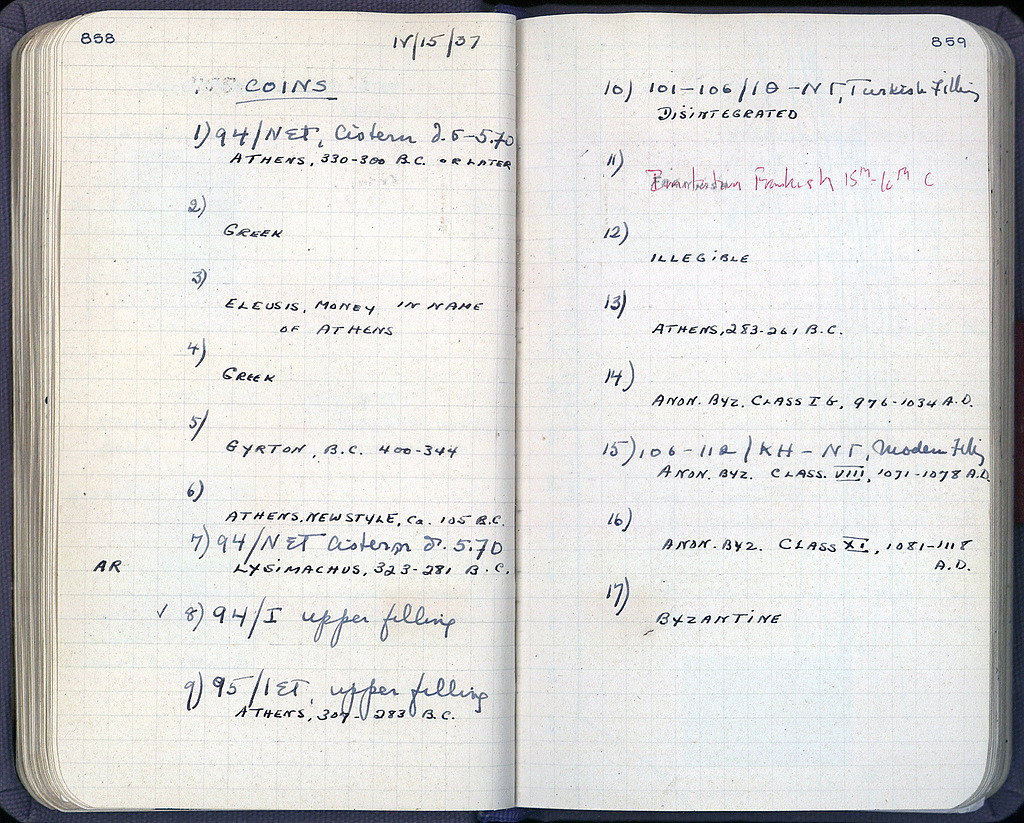 858
IV/15/37
COINS
1) 94/NΣT, Cistern d. 5-5.70
ATHENS, 330-300 B.C. OR LATER
2)
GREEK
3)
ELEUSIS, MONEY IN NAME
OF ATHENS
4)
GREEK
5)
GYRTON, B.C. 400-344
6)
ATHENS, NEW STYLE, Ca. 105 B.C.
7) 94/NΣT Cistern d. 5.70
AR LYSIMACHUS, 323-281 B.C.
✓ 8) 94/I upper filling
9) 95/IΣT, upper filling
ATHENS, 307-283 B.C.
859
10) 101-106/IΘ-NΓ, Turkish Filling
DISINTEGRATED
11)
Frankish 15th-16th C
12)
ILLEGIBLE
13)
ATHENS, 283-261 B.C.
14)
ANON. BYZ. CLASS I G, 976-1034 A.D.
15) 106-112/KH-NΓ, Modern Filling
ANON. BYZ. CLASS. VIII, 1071-1078 A.D.
16)
ANON. BYZ. CLASS XI, 1081-1118
A.D.
17)
BYZANTINE